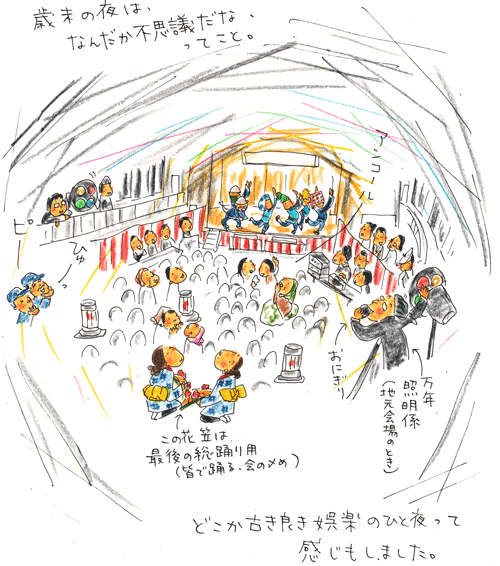 歳末の夜は、
なんだか不思議だな、
ってこと。
アンコール
ピー
ひゅーっ
おにぎり
万年
照明係
(地元会場のとき)
この花笠は、
最後の総踊り用
(皆で踊る、会の〆め)
どこか古き良き娯楽のひと夜って
感じもしました。